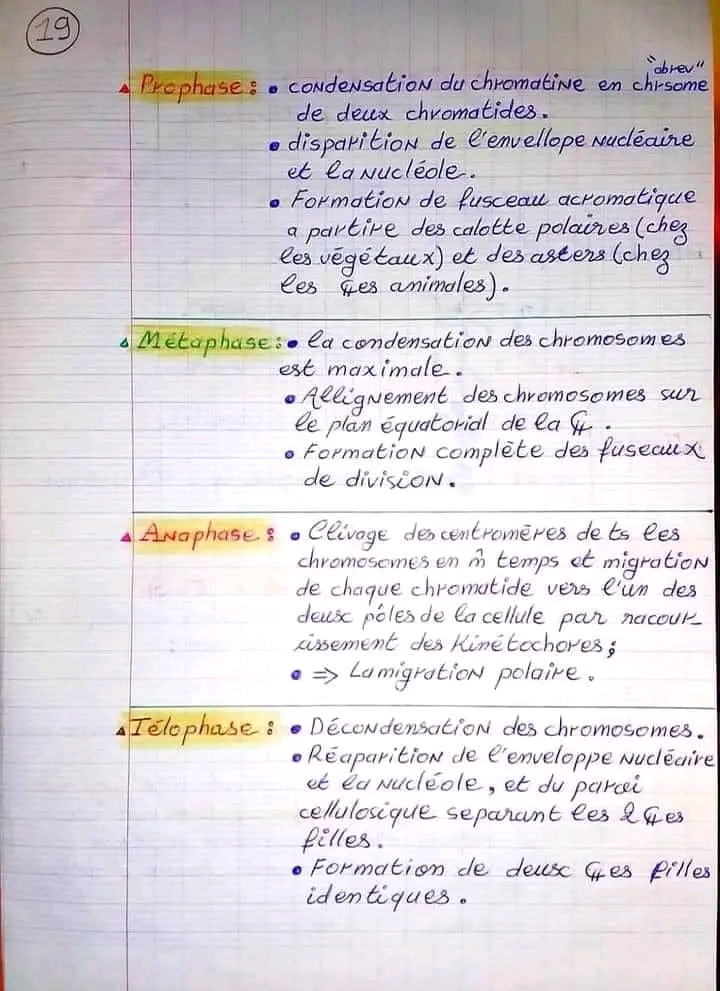 19
"abrev"
Prophase : • condensation du chromatine en chrsome
de deux chromatides.
• disparition de l'envellope nucléaire
et la nucléole.
• Formation de fusceau acromatique
a partire des calotte polaires (chez
les végétaux) et des asters (chez
les çes animales).
Métaphase : • la condensation des chromosomes
est maximale.
• Allignement des chromosomes sur
le plan équatorial de la
• Formation complète des fuseaux
de division.
Anaphase : • Clivage des centromères de ts les
chromosomes en m̂ temps et migration
de chaque chromatide vers l'un des
deux pôles de la cellule par racour-
issement des Kinétochores ;
• => La migration polaire.
Télophase : • Décondensation des chromosomes.
• Réaparition de l'enveloppe nucléaire
et la nucléole, et du paroi
cellulosique separant les 2 çes
filles.
• Formation de deux çes filles
identiques.